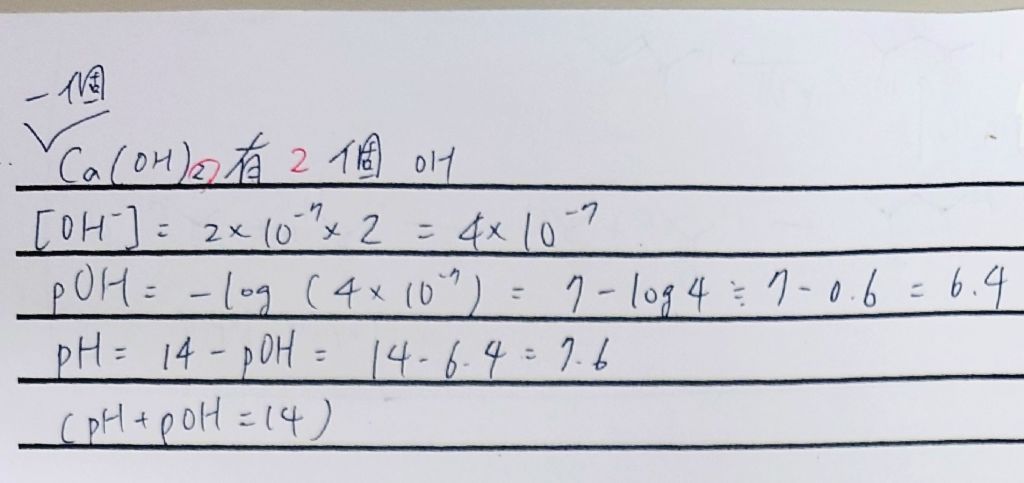 一個
Ca(OH)₂有 2 個 OH
[OH⁻] = 2×10⁻⁷×2 = 4×10⁻⁷
pOH = -log (4×10⁻⁷) = 7-log4 ≒ 7-0.6 = 6.4
pH = 14-pOH = 14-6.4 = 7.6
(pH+pOH=14)